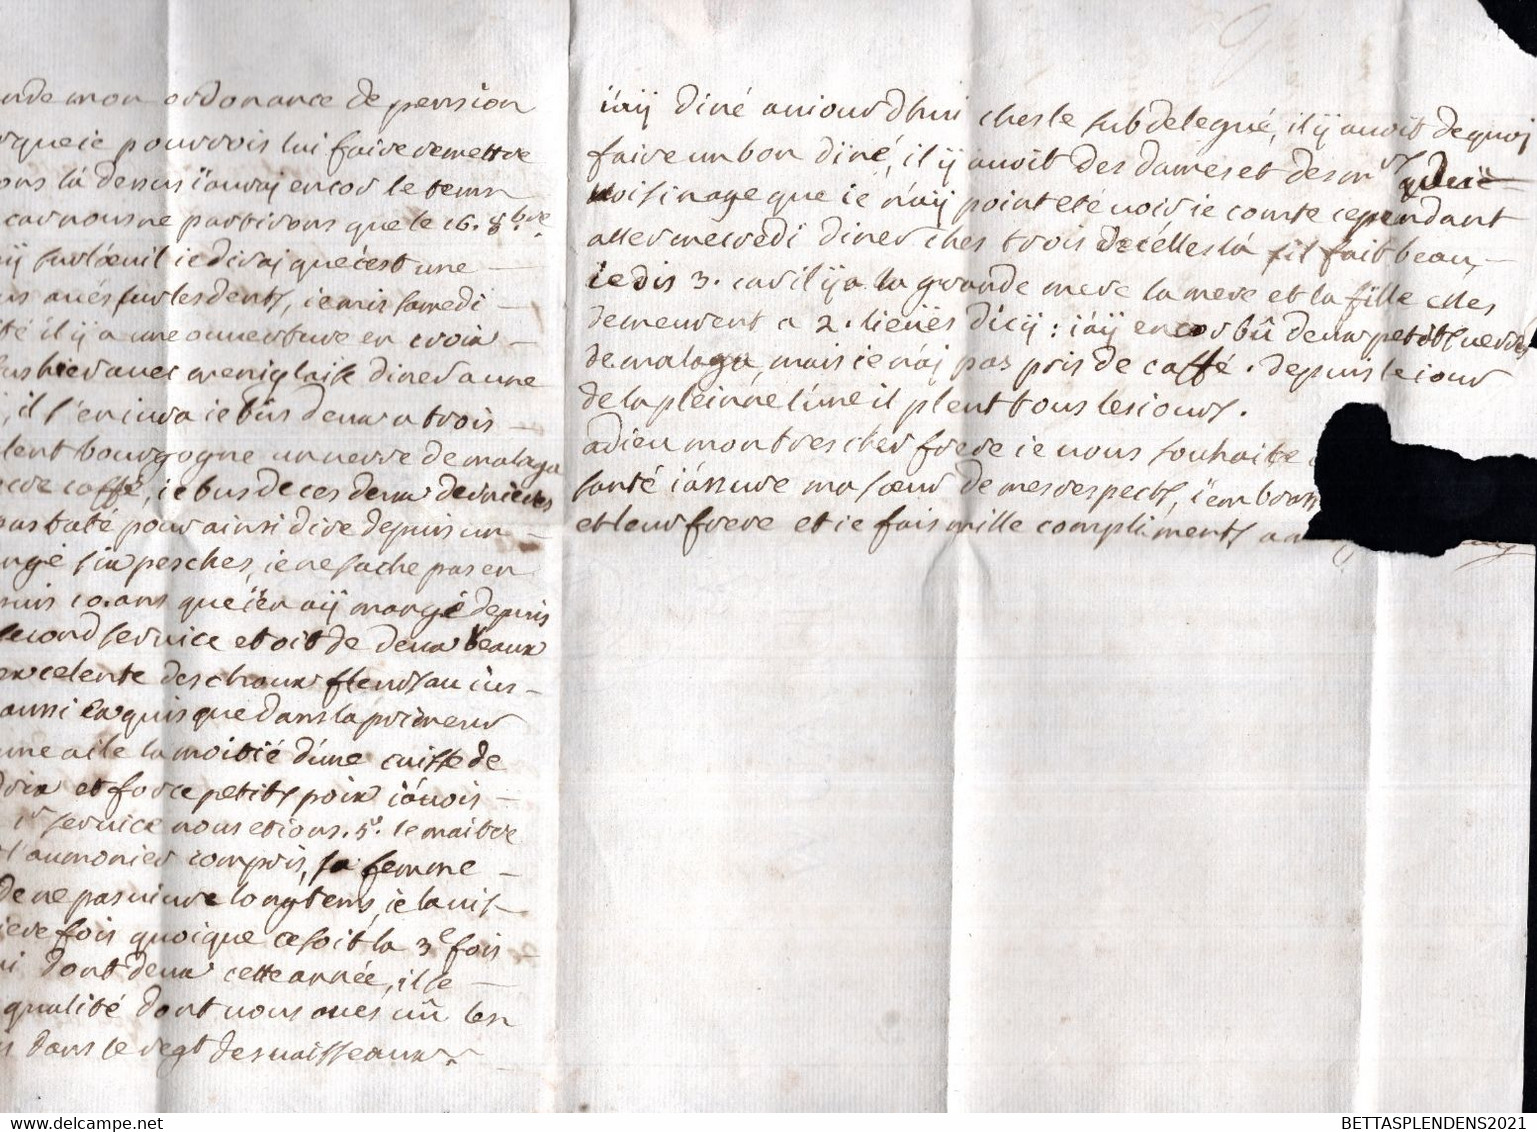 nde mon ordonance de pension
queie pourrois lui faire remettre
ons la dessus i'auraj encor le tems
car nous ne partirons que le 16. 8.bre
ij sur l'oeuil ie diraj que c'est une
us aués sur les dents, ie mis samedi
té il ÿ a une ouuerture en croix
hier auec meniglaise diner a une
, il s'eniura ie bûs deux a trois
lent bourgogne un verre de malaga
caffé, ie bus de ces deux dernieres
pas taté pour ainsi dire depuis un
ngé six pesches, ie ne sache pas en
uis 10. ans que i'en aÿ mangé depuis
second seruice etoit de deux beaux
excelente des choux fleurs au ius
aussi exquis que dans la primeur
une aile la moitié d'une cuisse de
drix et force petits poix i'auois
1r seruice nous etions .5. le maitre
l'aumonier compris, sa femme
de ne pas uiure longtems, ie la uis
iere fois quoique ce soit la 3e fois
i dont deux cette année, il se
qualité dont uous aués uû les
s dans le regt des uaisseaux.
i'aÿ diné auiourdhui ches le subdelegué, il ÿ auoit de quoj
faire un bon diné, il ÿ auoit des dames et des mrs
uoisinage que ie n'aÿ point eté uoir ie comte cependant
aller mecredi diner ches trois de celles la s'il fait beau,
ie dis 3. car il ÿ a la grande mere la mere et la fille elles
demeurent a 2. lieües d'icÿ : i'aÿ encor bû deux petits uerres
de malaga, mais ie n'aj pas pris de caffé . depuis le iour
de la pleine lune il pleut tous les iours .
adieu mon tres cher frere ie uous souhaite
santé i'assure ma soeur de mes respects, i'embrass
et leur frere et ie fais mille compliments a
BETTASPLENDENS2021